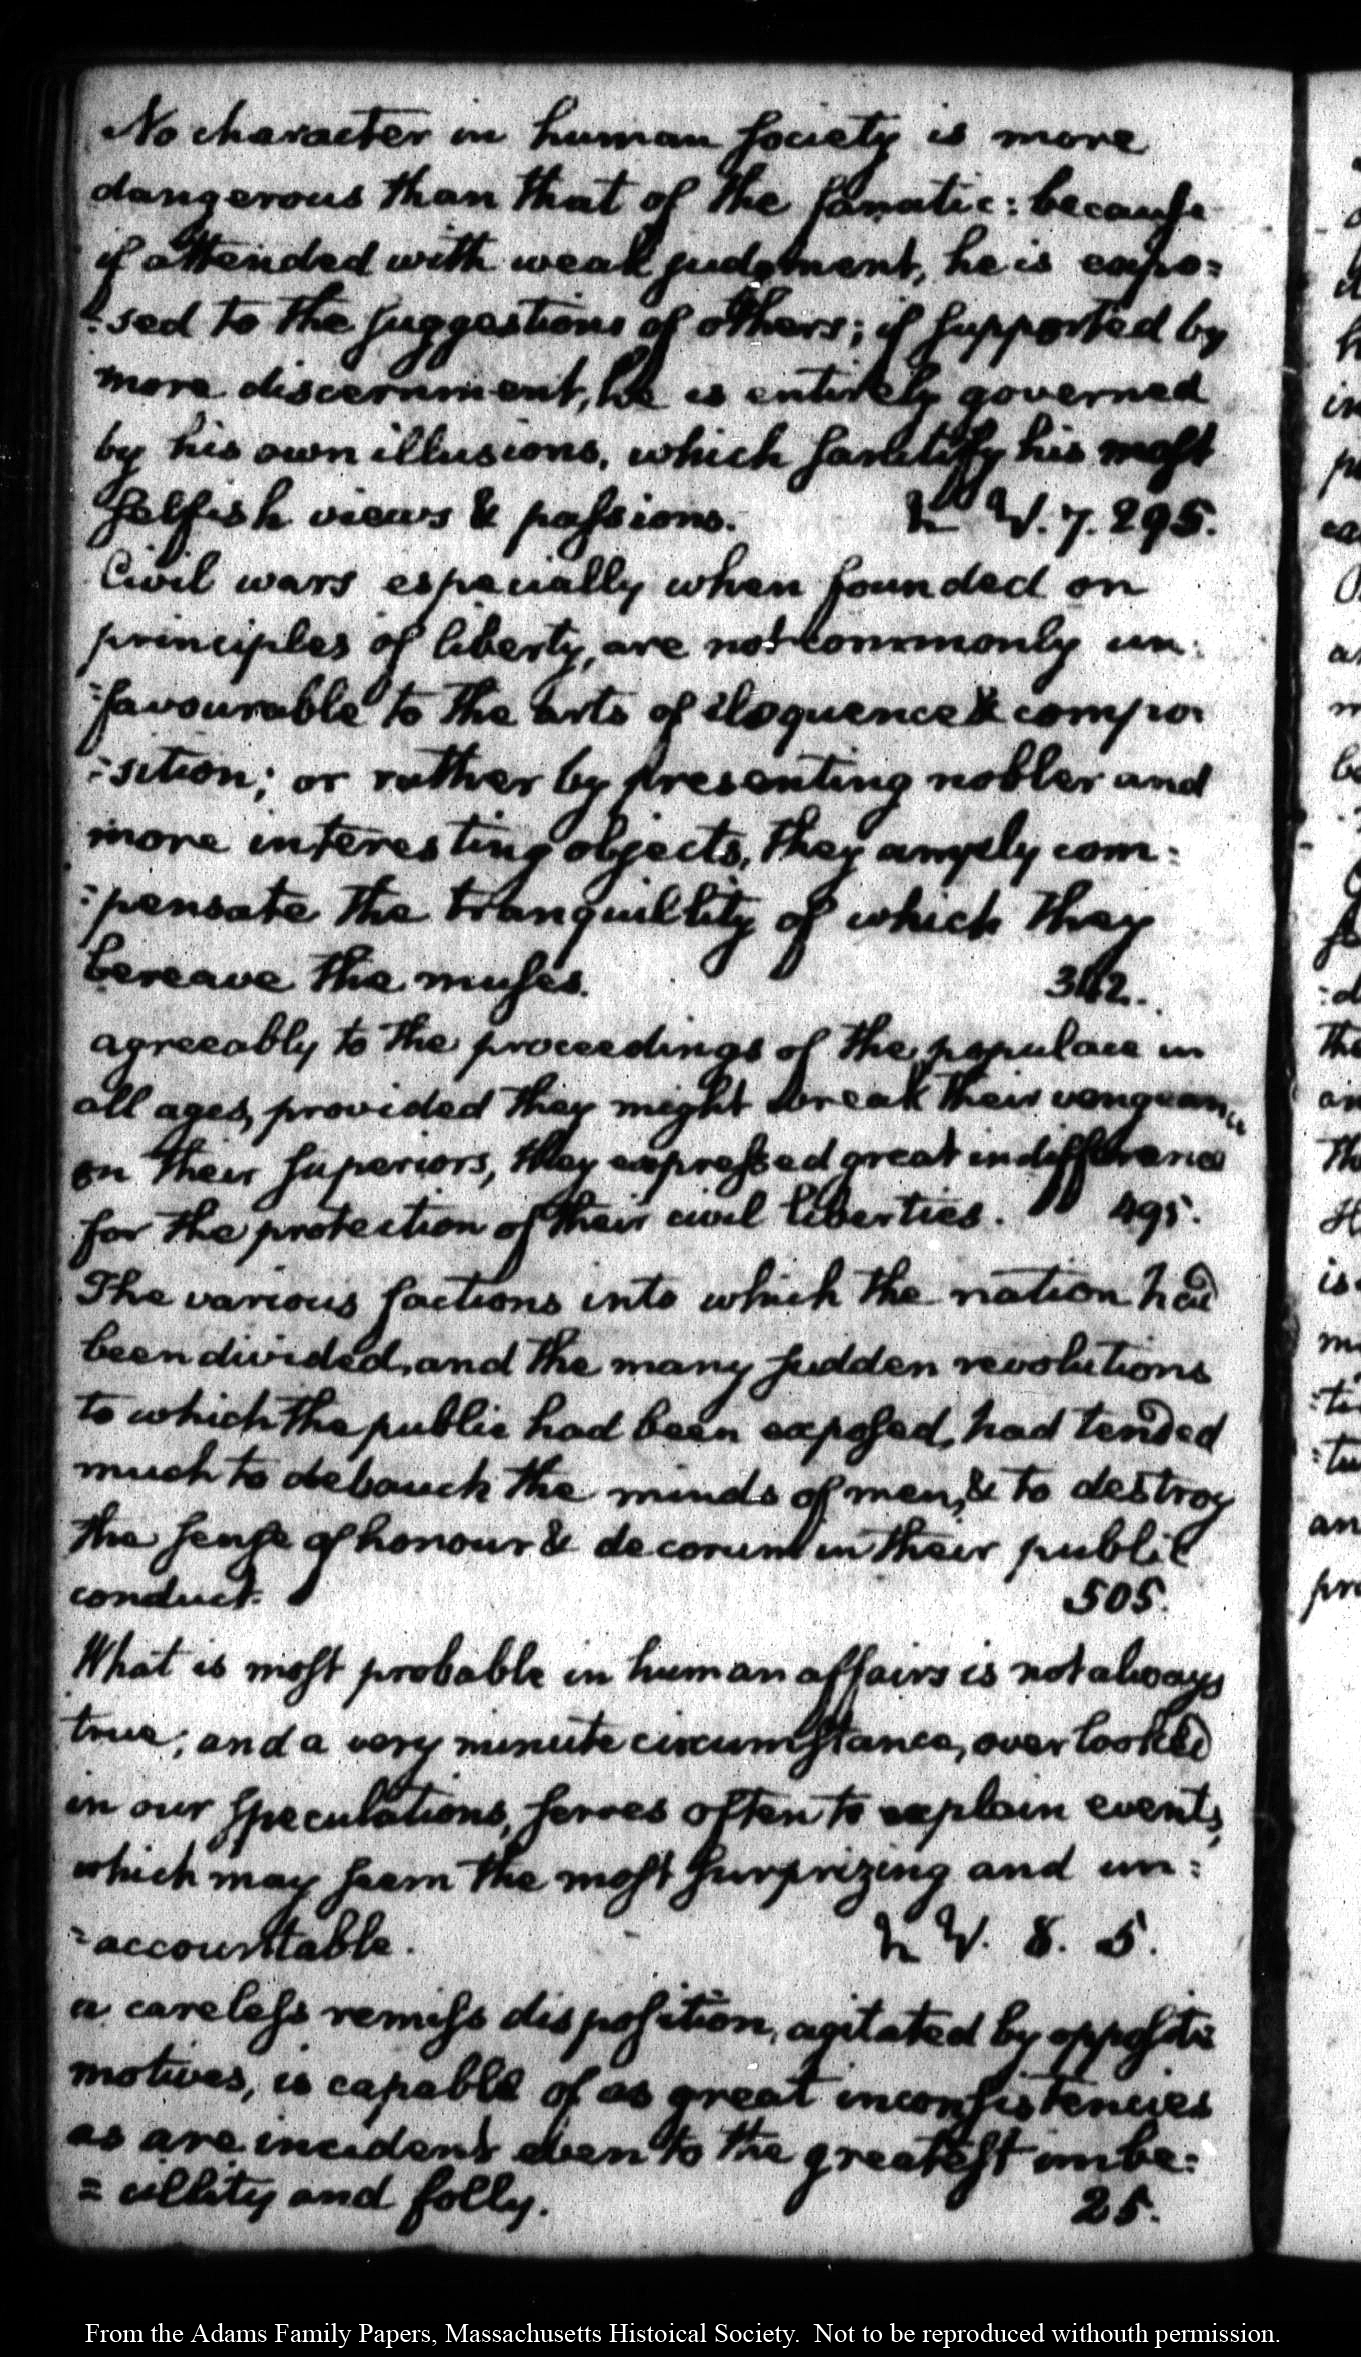 No character in human society is more
dangerous than that of the fanatic: because
if attended with weak judgment, he is expo=
:sed to the suggestions of others; if supported by
more discernment, he is entirely governed
by his own illusions, which sanctify his most
selfish views & passions. W. 7. 295.
Civil wars especially when founded on
principles of liberty, are not commonly un:
=favourable to the arts of eloquence & compo:
:sition; or rather by presenting nobler and
more interesting objects, they amply com:
:pensate the tranquillity of which they
bereave the muses. 342.
agreeably to the proceedings of the populace in
all ages, provided they might wreak their vengeance
on their superiors, they expressed great indifference
for the protection of their civil liberties. 495.
The various factions into which the nation had
been divided, and the many sudden revolutions
to which the public had been exposed, had tended
much to debauch the minds of men, & to destroy
the sense of honour & decorum in their public
conduct. 505.
What is most probable in human affairs is not always
true; and a very minute circumstance, overlooked
in our speculations, serves often to explain events,
which may seem the most surprizing and un:
=accountable. W. 8. 5.
a careless remiss disposition, agitated by opposite
motives, is capable of as great inconsistencies
as are incident even to the greatest imbe:
=cillity and folly. 25.
From the Adams Family Papers, Massachusetts Histoical Society. Not to be reproduced withouth permission.